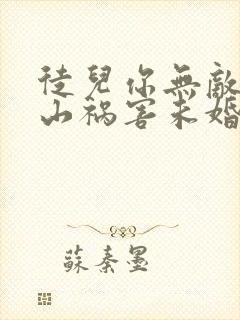 徒兒你無敵
山禍害未婚
蘇秦墨